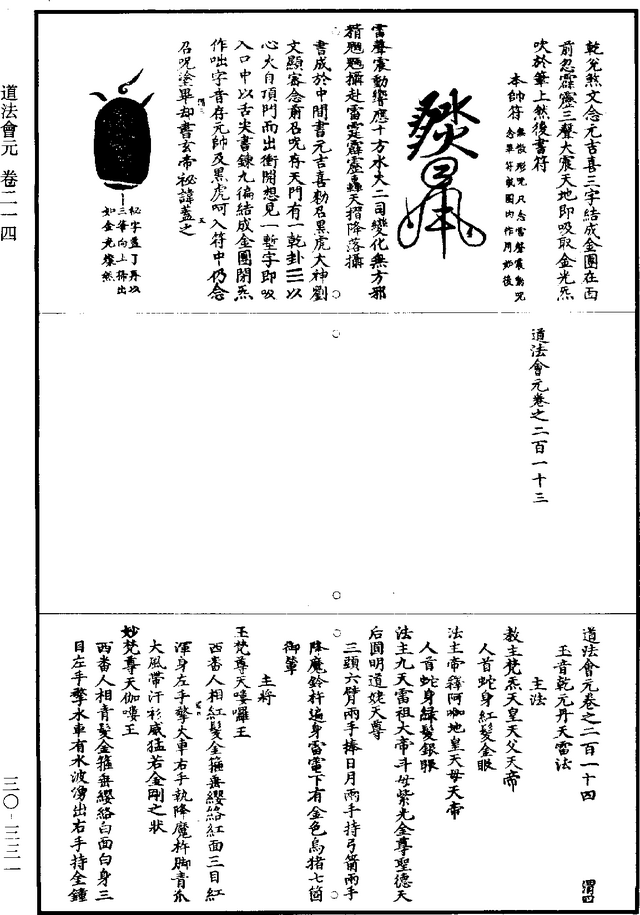 道法會元 卷二一四
三〇-三三一
乾兌煞文念元吉喜三字結成金團在西
前忽霹靂三聲大震天地即吸取金光炁
吹於筆上然後書符
本帥符
無散形呪只念雷聲震動呪
念畢符就圈内作用如後
雷聲震動響應十方水火二司變化無方邪
精魍魎攝赴雷霆霹靂轟天摺降落攝
書成於中間書元吉喜勑召黑虎大神劉
文顯審念前召呪存天門有一乾卦☰以
心火自頂門而出衝開想見一塹字即吸
入口中以舌尖書鍊九徧結成金團閉炁
作咄字音存元帥及黑虎呵入符中仍念
召呪塗畢却書玄帝祕諱蓋之
祕字蓋了再以
三筆向上拂出
如金光燦然
道法會元卷之二百一十三
道法會元卷之二百一十四
渭四
玉音乾元丹天雷法
主法
教主梵炁天皇天父天帝
人首蛇身紅髮金眼
法主帝釋阿咖地皇天母天帝
人首蛇身綠髮銀眼
法主九天雷祖大帝斗母紫光金尊聖德天
后圓明道姥天尊
三頭六臂兩手捧日月兩手持弓箭兩手
降魔鈴杵遍身雷電下有金色烏猪七箇
御輦
主將
玉梵尊天嘍囉王
西番人相紅髮金箍垂纓絡紅面三目紅
渾身左手擎火車右手執降魔杵脚青爪
大風帶汗衫威猛若金剛之狀
妙梵尊天伽嘍王
西番人相青髮金箍垂纓絡白面白身三
目左手擎水車有水波湧出右手持金鐘